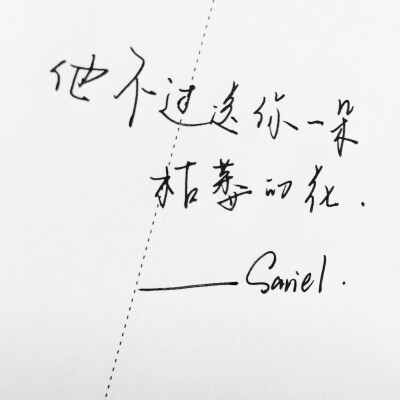 他不过送你一朵
枯萎的花.
——Sariel.